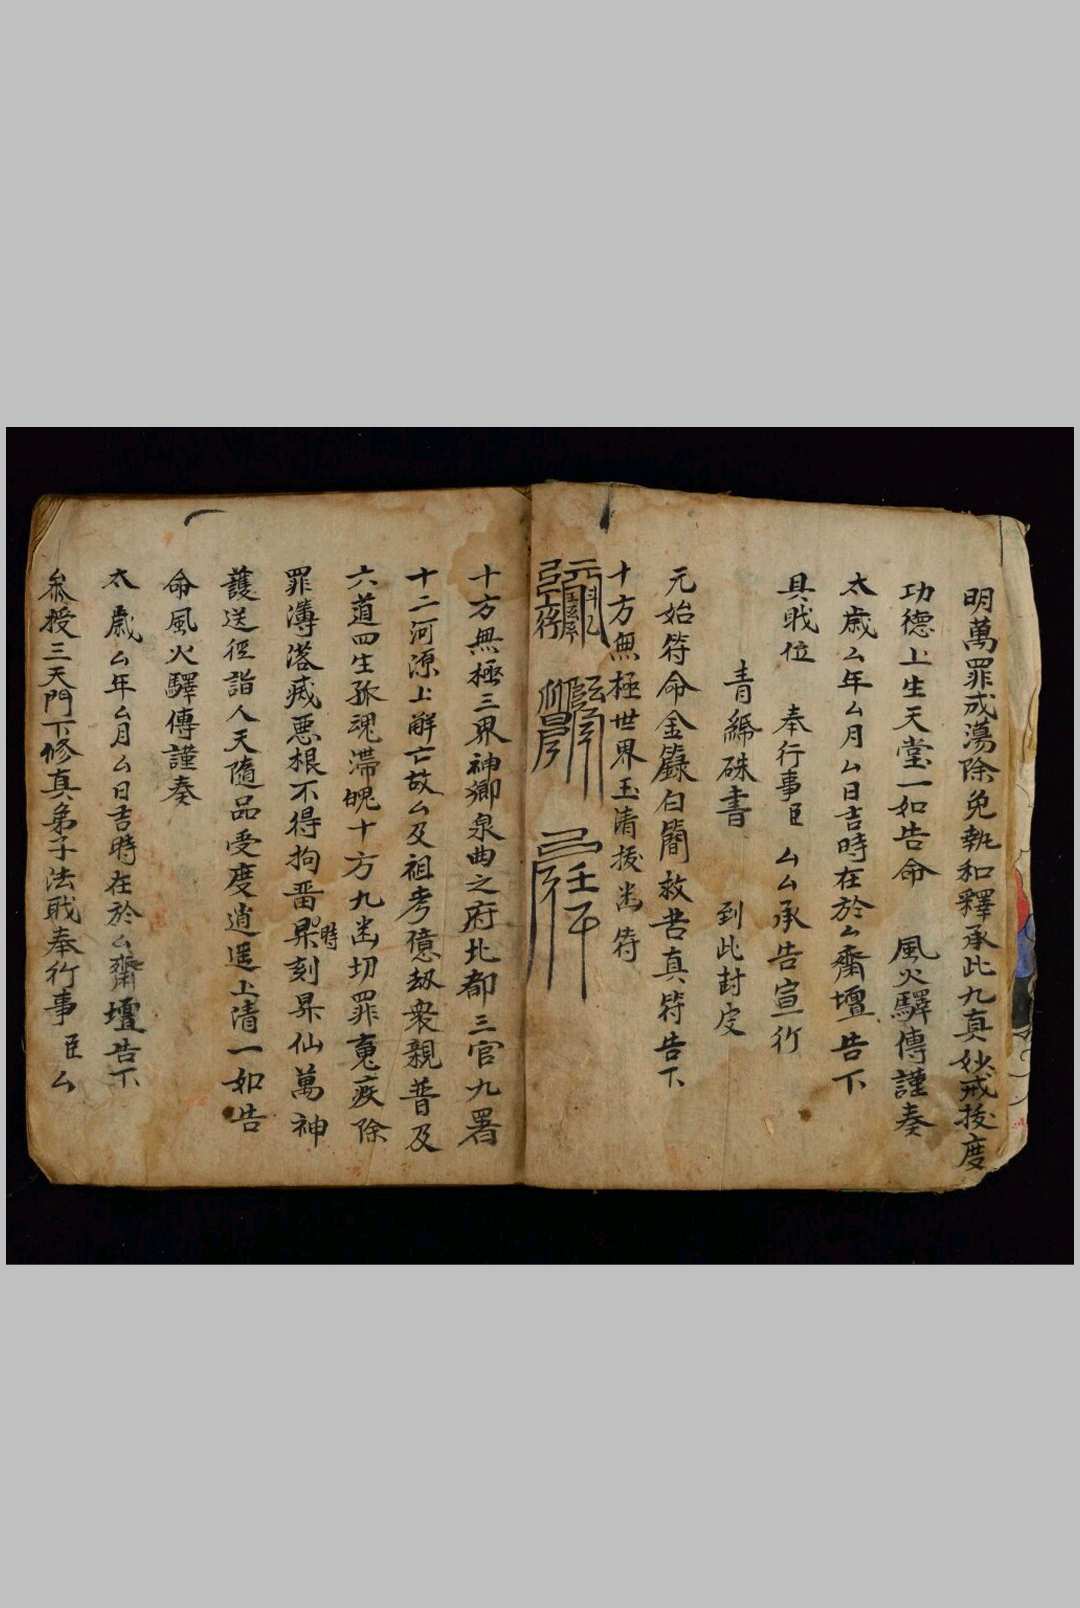 明萬罪咸蕩除免執和釋承此九真妙戒拔度
功德上生天堂一如告命 風火驛傳謹奏
太歲厶年厶月厶日吉時在於厶齋壇告下
具戝位 奉行事臣 厶厶承告宣行
青緺硃書 到此封定
元始符命金籙白簡救苦真符告下
十方無極世界玉清拔幽符
十方無極三界神鄉泉曲之府北都三官九署
十二河源上解亡故厶及祖考億劫衆親普及
六道四生孤魂滯魄十方九幽切罪寃疾除
罪簿落滅悪根不得拘畱㫷時刻昇仙萬神
護送徑詣人天隨品受度逍遥上清一如告
命風火驛傳謹奏
太歲厶年厶月厶日吉時在於厶齋壇告下
叅授三天門下修真弟子法戝奉行事臣厶